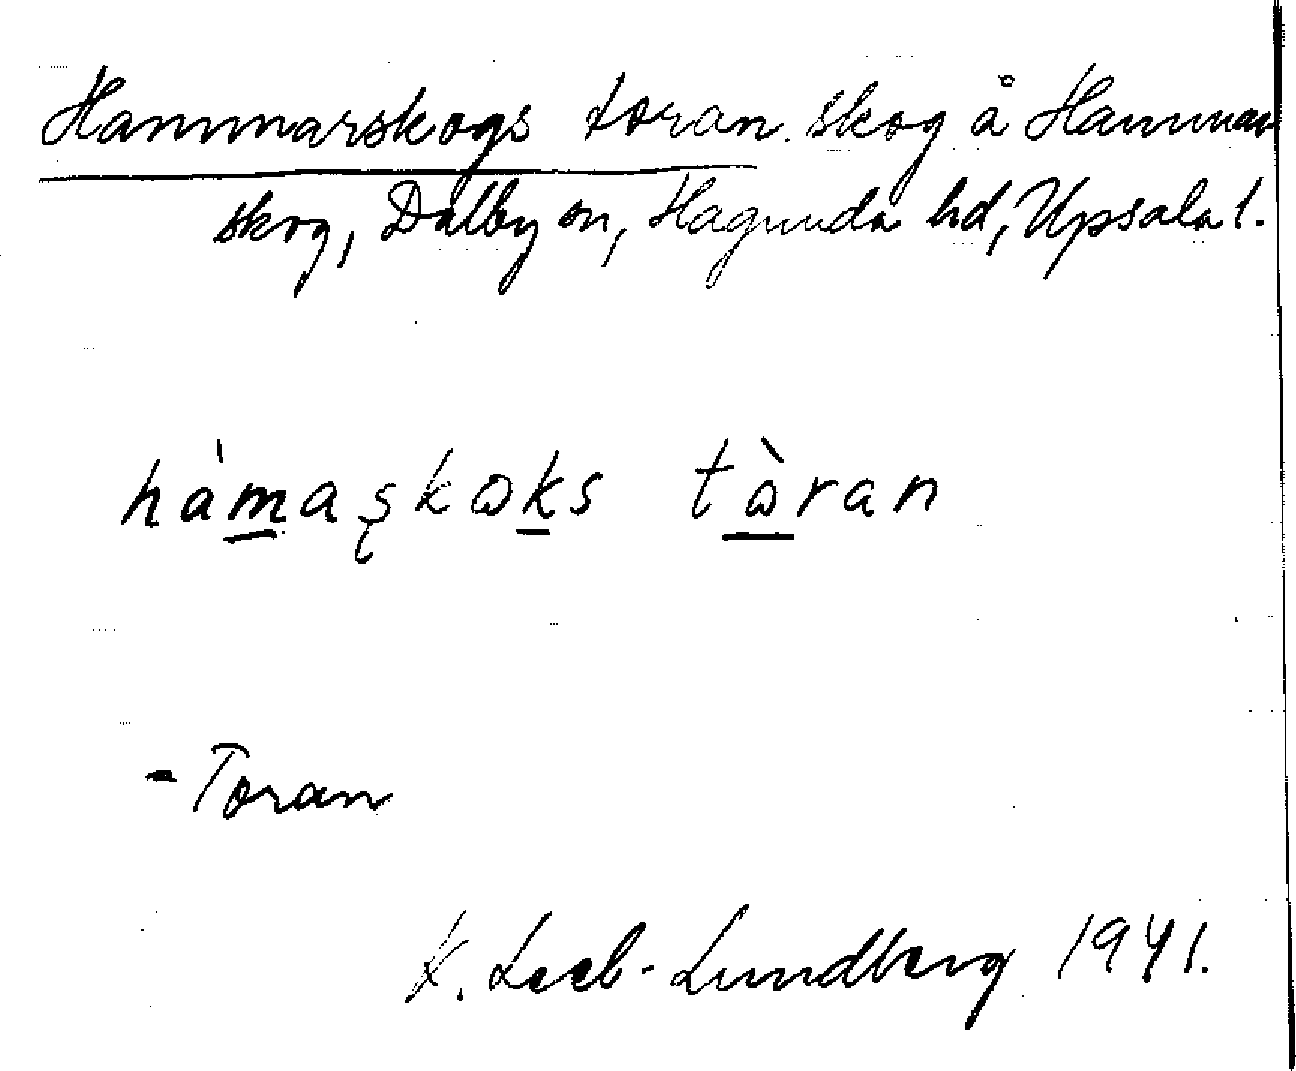 Hammarskogs toran. skog å Hammar
skog, Dalby sn, Hagunda hd, Upsala l.
hàmaşkɷks tɷ̀ran
- Toran
K. Leeb-Lundberg 1941.